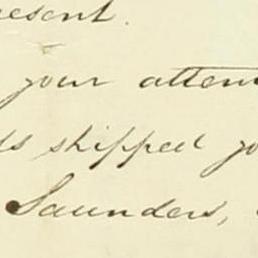 resent.
your atten
ds shipped yo
Saunders,